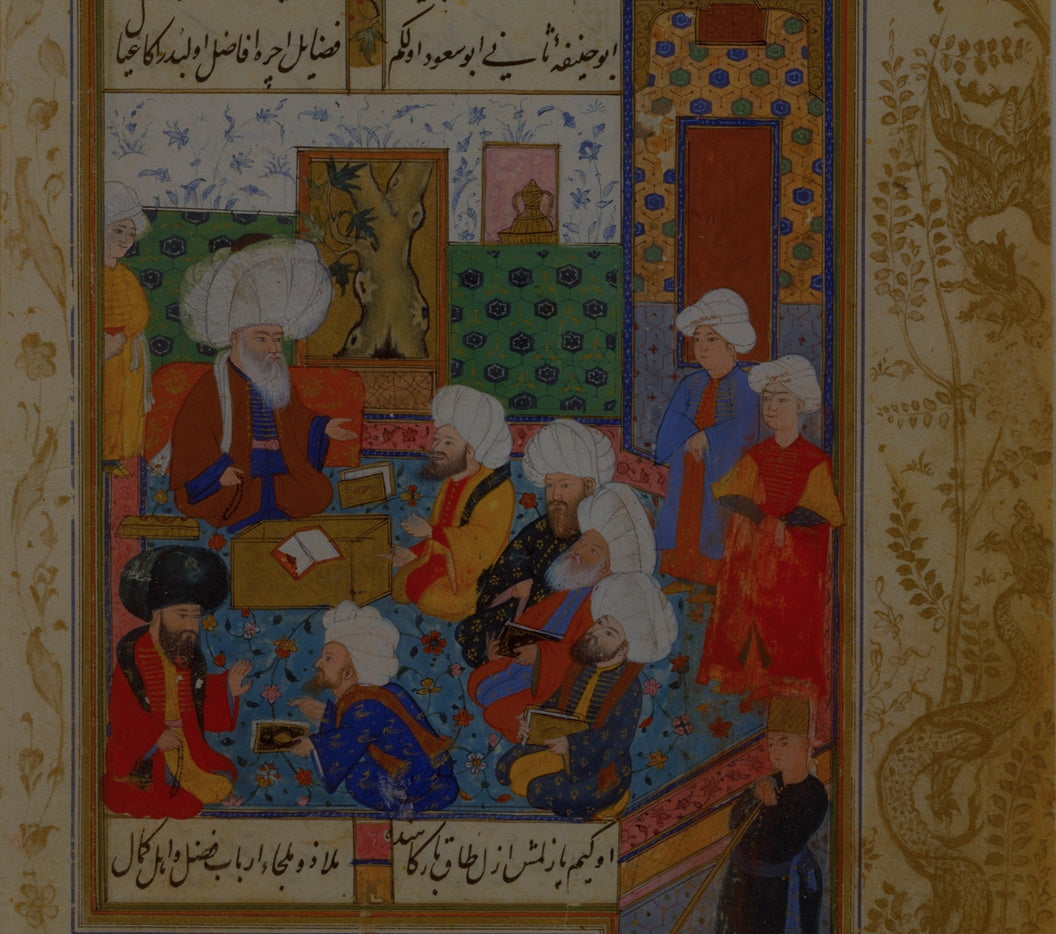 ابو حنیفهٔ ثانی ابو سعود اولکم
فضایل اجره افاضل اولبدر اکا عیال
اوکیم یازلمش ازل طاق بارکاسنده
ملاذ و ملجاء ارباب فضل و اهل کمال